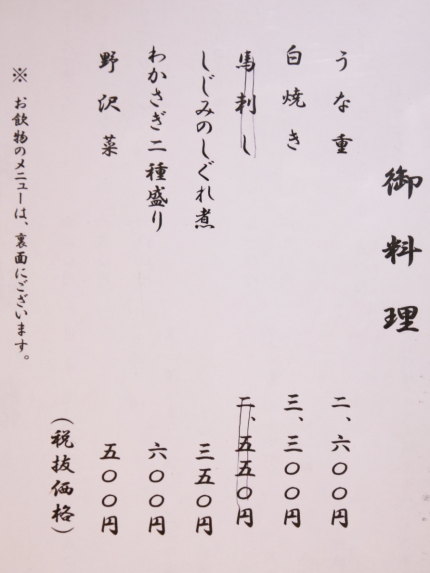 御料理
うな重 二、六〇〇円
白焼き 三、三〇〇円
馬刺し 二、五五〇円
しじみのしぐれ煮 三五〇円
わかさぎ二種盛り 六〇〇円
野沢菜 五〇〇円
(税抜価格)
※ お飲物のメニューは、裏面にございます。